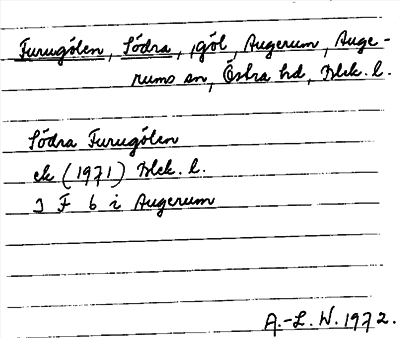 Furugölen, Södra, göl, Augerum, Auge-
rums sn, Östra hd, Blek. l.
Södra Furugölen
ek (1971) Blek. l.
J F 6 i Augerum
A.-L. W. 1972.